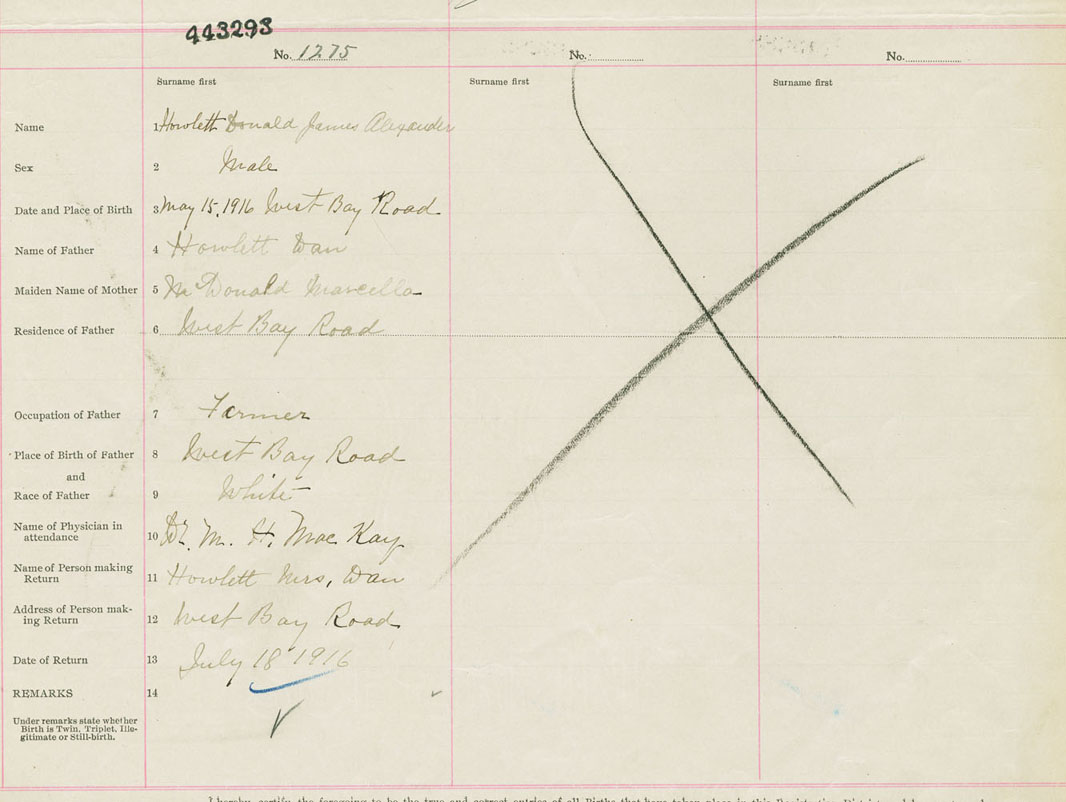 443293
No. 1275 No. No.
Surname first Surname first Surname first
Name 1 Howlett Donald James Alexander
Sex 2 Male
Date and Place of Birth 3 May 15, 1916 West Bay Road
Name of Father 4 Howlett Dan
Maiden Name of Mother 5 McDonald Marcella
Residence of Father 6 West Bay Road
Occupation of Father 7 Farmer
Place of Birth of Father 8 West Bay Road
and
Race of Father 9 White
Name of Physician in
attendance 10 Dr. M. H. MacKay
Name of Person making
Return 11 Howlett Mrs, Dan
Address of Person mak-
ing Return 12 West Bay Road
Date of Return 13 July 18 1916
REMARKS 14
Under remarks state whether
Birth is Twin, Triplet, Ille-
gitimate or Still-birth.
I hereby certify the foregoing to be the true and correct entries of all Births that have taken place in this Registration District